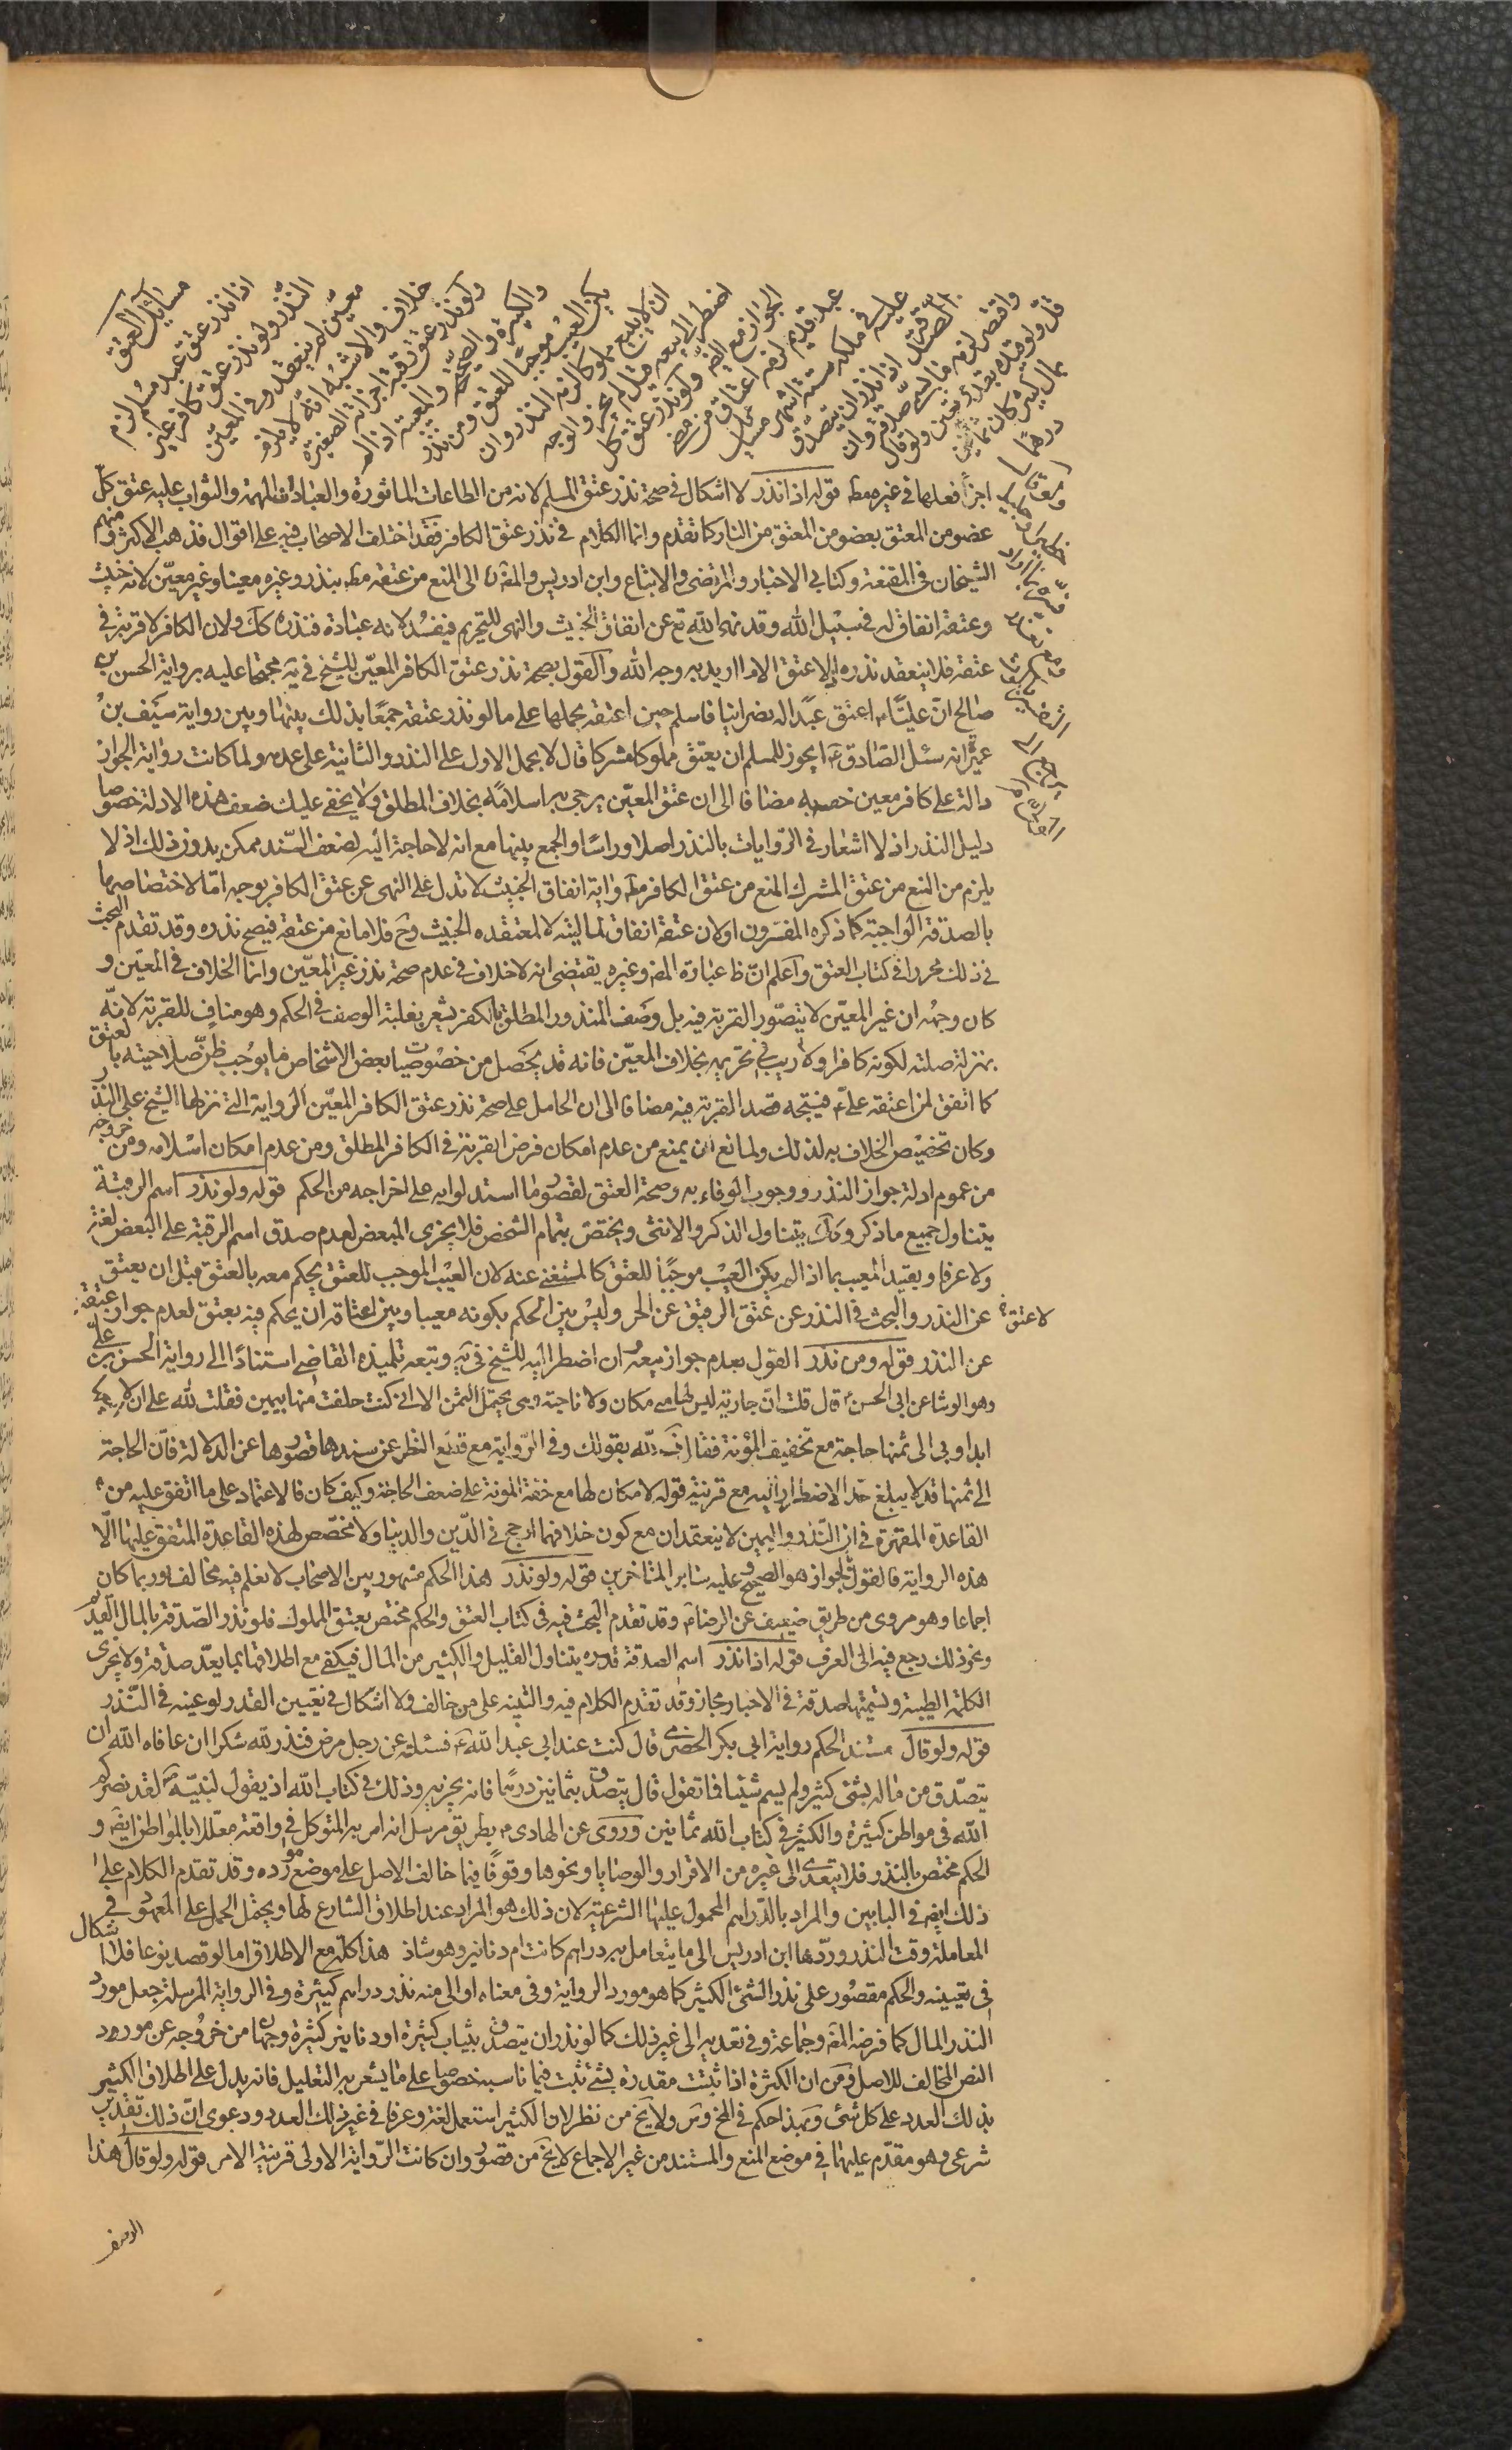 مسائل العتق
اذا نذر عتق عبد مسلم لزم
النذر ولو نذر عتق كافر غير
معين لم ينعقد وفي المعين
خلاف والاشبه انه لا يلزم
ولو نذر عتق رقبة اجزأته الصغيرة
والكبيرة والصحيحة والمعيبة اذا لم
يكن العيب موجبا للعتق ومن نذر
ان لا يبيع مملوكا لزمه النذر وان
اضطر الى بيعه قيل لم يجز والوجه
الجواز مع الضرورة ولو نذر عتق كل
عبد قديم لزمه اعتاق من مضى
عليه في ملكه ستة اشهر مسائل
الصدقة اذا نذر ان يتصدق
واقتصر لزمه ما يسمى صدقة وان
قل ولو قيده بقدر تعين ولو قال
بمال كثير كان ثمانين
درهما
اجزأ فعلها في غيره مط قوله اذا نذر لا اشكال في صحة نذر عتق المسلم لانه من الطاعات الماثورة والعبادات المهمة والثواب عليه عتق كل
عضو من المعتق بعضو من المعتق من النار كما تقدم وانما الكلام في نذر عتق الكافر فقد اختلف الاصحاب فيه على اقوال فذهب الاكثر ومنهم
الشيخان في المقنعة وكتابي الاخبار والمرتضى والاتباع وابن ادريس والمص الى المنع من عتقه مط بنذر وغيره معينا وغير معين لانه خبيث
وعتقه انفاق له في سبيل الله وقد نهى الله تع عن انفاق الخبيث والنهى للتحريم فيفسد لانه عبادة فنذره كك ولان الكافر لا قربة في
عتقه فلا ينعقد نذره اذ لا عتق الا ما اريد به وجه الله والقول بصحة نذر عتق الكافر المعين للشيخ في ية محتجا عليه برواية الحسن بن
صالح ان عليا ع اعتق عبدا له نصرانيا فاسلم حين اعتقه بحملها على ما لو نذر عتقه جمعا بذلك بينها وبين رواية سيف بن
عميرة انه سئل الصادق ع ايجوز للمسلم ان يعتق مملوكا مشركا قال لا بحمل الاول على النذر والثانية على عدمه ولما كانت رواية الجواز
دالة على كافر معين خصه به مضافا الى ان عتق المعين يرجى به اسلامه بخلاف المطلق ولا يخفى عليك ضعف هذه الادلة خصوصا
دليل النذر اذ لا اشعار في الروايات بالنذر اصلا وراسا والجمع بينها مع انه لا حاجة اليه لضعف السند ممكن بدون ذلك اذ لا
يلزم من المنع من عتق المشرك المنع من عتق الكافر مط واية انفاق الخبيث لا تدل على النهى عن عتق الكافر بوجه اما لاختصاصها
بالصدقة الواجبة كما ذكره المفسرون او لان عتقه انفاق لماليته لا لمعتقده الخبيث وح فلا مانع من عتقه فيصح نذره وقد تقدم البحث
في ذلك محررا في كتاب العتق واعلم ان ظ عبارة المص وغيره يقتضى انه لا خلاف في عدم صحة نذر غير المعين وانما الخلاف في المعين و
كان وجهه ان غير المعين لا يتصور القربة فيه بل وصف المنذور المطلق بالكفر يشعر بغلبة الوصف في الحكم وهو مناف للقربة لانه
بمنزلة صلته لكونه كافرا ولا ريب في تحريمه بخلاف المعين فانه قد يحصل من خصوصيات بعض الاشخاص ما يوجب ظن صلاحيته بالعتق
كما اتفق لمن اعتقه على ع فيتجه قصد القربة فيه مضافا الى ان الحامل على صحة نذر عتق الكافر المعين الرواية التي نزلها الشيخ على النذر
وكان تخصيص الخلاف به لذلك ولمانع ان يمنع من عدم امكان فرض القربة في الكافر المطلق ومن عدم امكان اسلامه ومن خروجه
من عموم ادلة جواز النذر ووجوب الوفاء به وصحة العتق لقصور ما استدلوا به على اخراجه من الحكم قوله ولو نذر اسم الرقبة
يتناول جميع ما ذكر وكك يتناول الذكر والانثى ويختص بتمام الشخص فلا يجزى المبعض لعدم صدق اسم الرقبة على البعض لغة
ولا عرفا ويقيد المعيب بما اذا لم يكن العيب موجبا للعتق كالمستغنى عنه لان العيب الموجب للعتق يحكم معه بالعتق قبل ان يعتق
لا عتق عن النذر والبحث في النذر عن عتق الرقيق عن الحر وليس بين الحكم بكونه معيبا وبين اعتاقه ان يحكم فيه بعتق لعدم جواز عتقه
عن النذر قوله ومن نذر القول بعدم جواز بيعه ان اضطر اليه للشيخ في ية وتبعه تلميذه القاضى استنادا الى رواية الحسن بن على
وهو الوشا عن ابى الحسن ع قال قلت ان جارية ليس لها منى مكان ولا ناحية وهى يحتمل الثمن الا انى كنت حلفت منها بيمين فقلت لله على ان لا ابيعها
ابدا وبى الى ثمنها حاجة مع تخفيف المؤنة فقال ف لله بقولك وفي الرواية مع قطع النظر عن سندها قصورها عن الدلالة فان الحاجة
الى ثمنها قد لا يبلغ حد الاضطرار اليه مع قرينة قوله لا مكان لها مع خفة المؤنة على ضعف الحاجة وكيف كان فالاعتماد على ما اتفق عليه من
القاعدة المقررة في ان النذر واليمين لا ينعقدان مع كون خلافهما ارجح في الدين والدنيا ولا مخصص لهذه القاعدة المتفق عليها الا
هذه الرواية فالقول بالجواز هو الصحيح وعليه ساير المتاخرين قوله ولو نذر هذا الحكم مشهور بين الاصحاب لا نعلم فيه مخالف وربما كان
اجماعا وهو مروى من طريق ضعيف عن الرضا ع وقد تقدم البحث فيه في كتاب العتق والحكم مختص بعتق المملوك فلو نذر الصدقة بالمال القديم
ونحو ذلك رجع فيه الى العرف قوله اذا نذر اسم الصدقة قدره يتناول القليل والكثير من المال فيكفى مع اطلاقها بما يعد صدقة ولا يجزى
الكلمة الطيبة وتسميتها صدقة في الاخبار مجاز وقد تقدم الكلام فيه والتنبيه على من خالف ولا اشكال في تعيين القدر لو عينه في النذر
قوله ولو قال مستند الحكم رواية ابى بكر الحضرمى قال كنت عند ابى عبد الله ع فسئله عن رجل مرض فنذر لله شكرا ان عافاه الله ان
يتصدق من ماله بشئ كثير ولم يسم شيئا فما تقول قال يتصدق بثمانين درهما فانه يجزيه وذلك في كتاب الله اذ يقول لنبيه ص لقد نصركم
الله في مواطن كثيرة والكثير في كتاب الله ثمانين وروى عن الهادى ع بطريق مرسل انه امر به المتوكل في واقعة معللا بالمواطن ايضا و
الحكم مختص بالنذر فلا يتعدى الى غيره من الاقرار والوصايا ونحوها وقوفا فيما خالف الاصل على موضع مورده وقد تقدم الكلام على
ذلك ايض في البابين والمراد بالدراهم المحمول عليها الشرعية لان ذلك هو المراد عند اطلاق الشارع لها ويحتمل الحمل على المعهود في
المعاملة وقت النذر وردها ابن ادريس الى ما يتعامل به دراهم كانت ام دنانير وهو شاذ هذا كله مع الاطلاق اما لو قصد نوعا فلا اشكال
في تعيينه والحكم مقصور على نذر الشئ الكثير كما هو مورد الرواية وفي معناه او الى منه نذر دراهم كثيرة وفي الرواية المرسلة جعل مورد
النذر المال كما فرضه المص وجماعة وفي تعديه الى غير ذلك كما لو نذر ان يتصدق بثياب كثيرة او دنانير كثيرة وجهان من خروجه عن مورد
النص المخالف للاصل ومن ان الكثرة اذا ثبتت مقدرة بشئ ثبت فيما ناسبه خصوصا على ما يشعر به التعليل فانه يدل على اطلاق الكثير
بذلك العدد على كل شئ وبهذا حكم في المخ وس ولا يخ من نظر لان الكثير استعمل لغة وعرفا في غير ذلك العدد ودعوى ان ذلك تقدير
شرعى وهو مقدم عليها في موضع المنع والمستند من غير الاجماع لا يخ من قصور وان كانت الرواية الاولى قرينة الامر قوله ولو قال هذا
الوصف